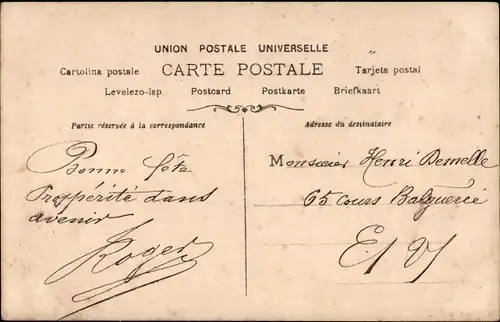 UNION POSTALE UNIVERSELLE
Cartolina postale CARTE POSTALE Tarjeta postal
Levelezo-lap Postcard Postkarte Briefkaart
Partie réservée à la correspondance
Adresse du destinataire
Bonne fête
Prospérité dans
avenir
Roger
Monsieur Henri Demelle
65 Cours Balguerie
E/V